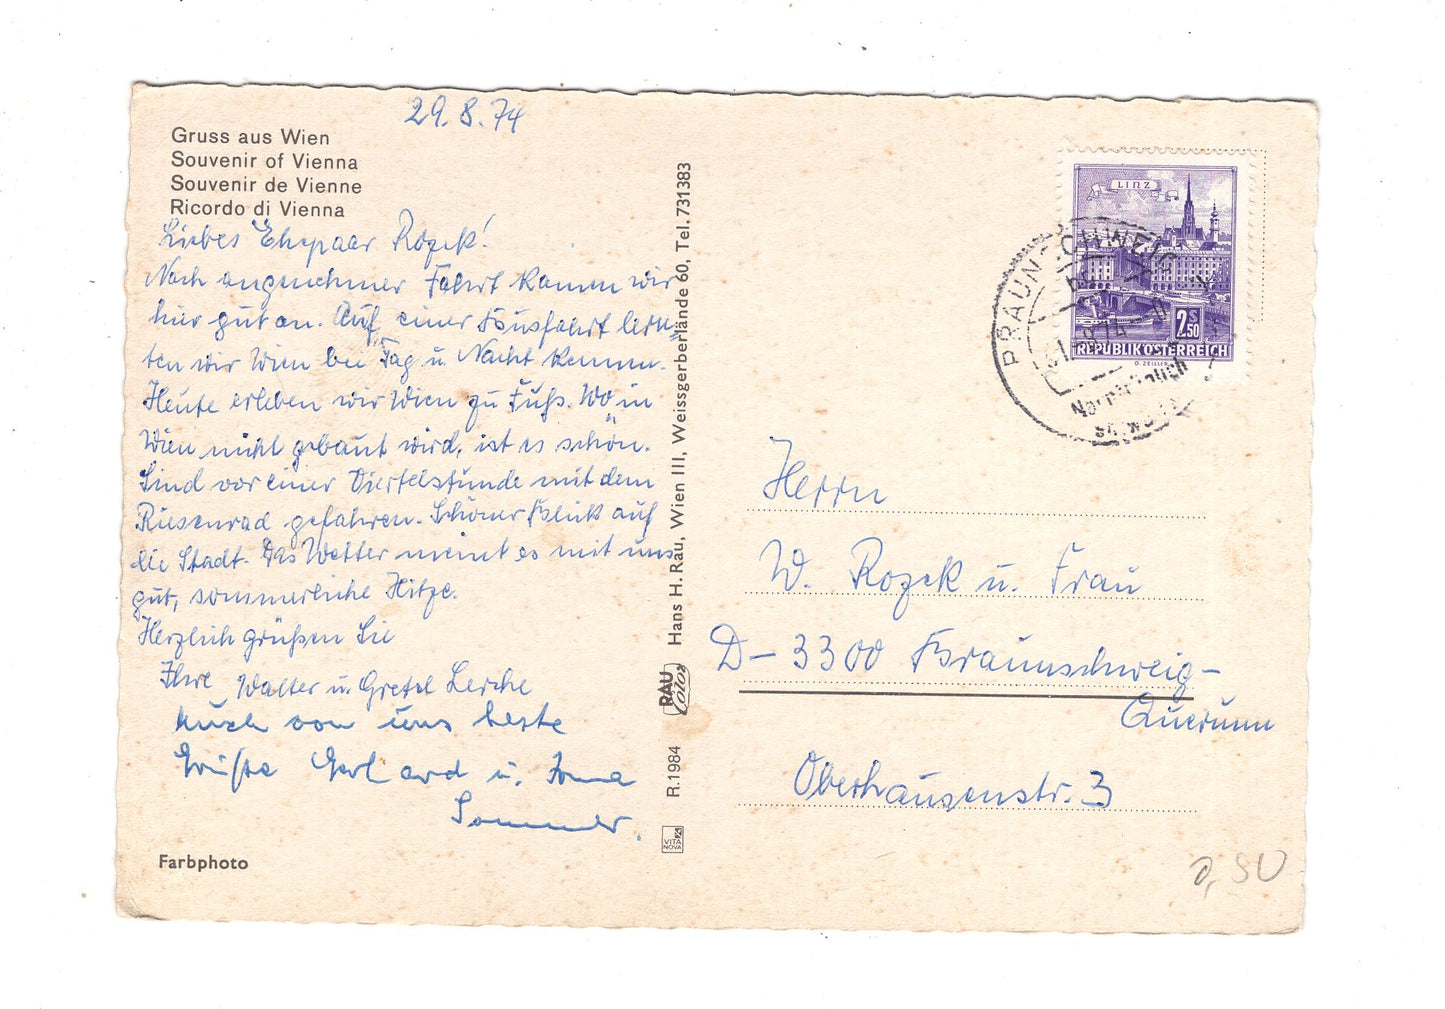 29.8.74
Gruss aus Wien
Souvenir of Vienna
Souvenir de Vienne
Ricordo di Vienna
Liebes Ehepaar Rozek!
Nach angenehmer Fahrt kamen wir
hier gut an. Auf einer Busfahrt lern-
ten wir Wien bei Tag u. Nacht kennen.
Heute erleben wir Wien zu Fuß. Wo in
Wien nicht gebaut wird, ist es schön.
Sind vor einer Viertelstunde mit dem
Riesenrad gefahren. Schöner Blick auf
die Stadt. Das Wetter meint es mit uns
gut, sommerliche Hitze.
Herzlich grüßen Sie
Ihre Walter u. Gretel Lerche
Auch von uns beste
Grüße Gerhard u. Irma
Sommer.
Farbphoto
R.1984 RAU Color Hans H. Rau, Wien III, Weissgerberlände 60, Tel. 731383
VITA
NOVA
LINZ
2 S 50
REPUBLIK ÖSTERREICH
BRAUNSCHWEIG
Herrn
W. Rozek u. Frau
D-3300 Braunschweig-
Querum
Oberhausenstr. 3
0,50